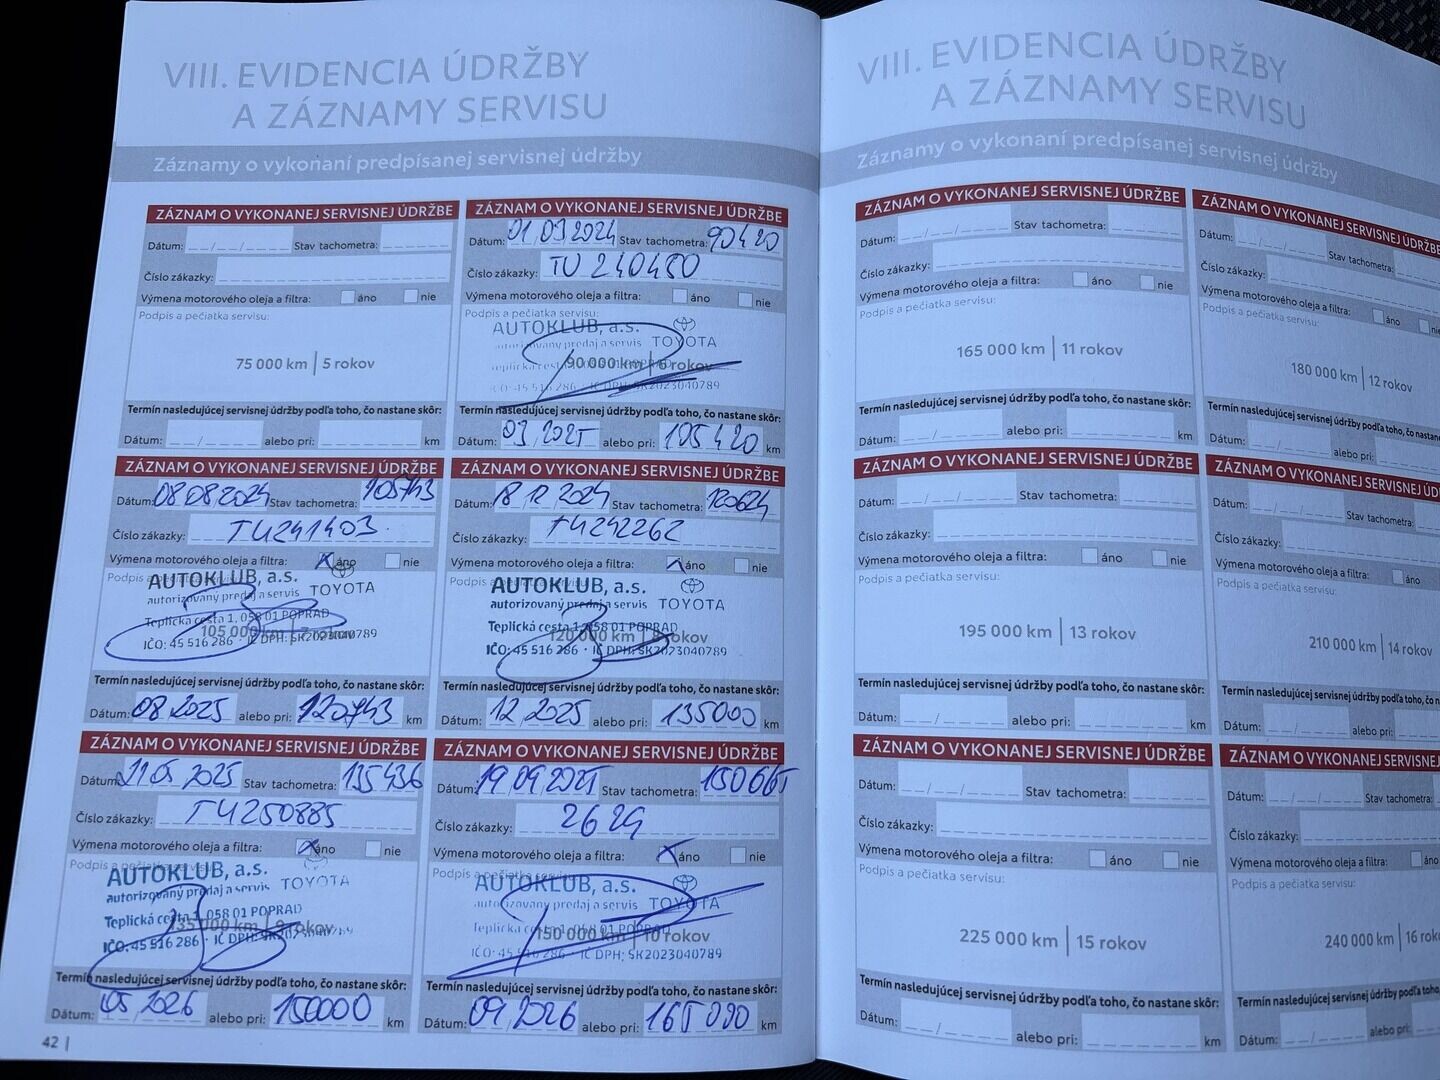 VIII. EVIDENCIA ÚDRŽBY
A ZÁZNAMY SERVISU
Záznamy o vykonaní predpísanej servisnej údržby
ZÁZNAM O VYKONANEJ SERVISNEJ ÚDRŽBE
Dátum: __/__/____ Stav tachometra:
Číslo zákazky:
Výmena motorového oleja a filtra: áno nie
Podpis a pečiatka servisu:
75 000 km | 5 rokov
Termín nasledujúcej servisnej údržby podľa toho, čo nastane skôr:
Dátum: __/____ alebo pri: km
ZÁZNAM O VYKONANEJ SERVISNEJ ÚDRŽBE
Dátum: 01 03 2024 Stav tachometra: 90420
Číslo zákazky: TU 240480
Výmena motorového oleja a filtra: áno nie
Podpis a pečiatka servisu:
AUTOKLUB, a.s.
autorizovaný predaj a servis TOYOTA
90 000 km | 6 rokov
IČO: 45 516 286 · IČ DPH: SK2023040789
Termín nasledujúcej servisnej údržby podľa toho, čo nastane skôr:
Dátum: 03 2025 alebo pri: 105420 km
ZÁZNAM O VYKONANEJ SERVISNEJ ÚDRŽBE
Dátum: 08 08 2024 Stav tachometra: 105743
Číslo zákazky: TU241403
Výmena motorového oleja a filtra: X áno nie
Podpis a
AUTOKLUB, a.s.
autorizovaný predaj a servis TOYOTA
Teplická cesta 1, 058 01 POPRAD
105 000 km
IČO: 45 516 286 · IČ DPH: SK2023040789
Termín nasledujúcej servisnej údržby podľa toho, čo nastane skôr:
Dátum: 08 2025 alebo pri: 120743 km
ZÁZNAM O VYKONANEJ SERVISNEJ ÚDRŽBE
Dátum: 18 12 2024 Stav tachometra: 120624
Číslo zákazky: TU242262
Výmena motorového oleja a filtra: X áno nie
Podpis a
AUTOKLUB, a.s.
autorizovaný predaj a servis TOYOTA
Teplická cesta 1, 058 01 POPRAD
120 000 km | 8 rokov
IČO: 45 516 286 · IČ DPH: SK2023040789
Termín nasledujúcej servisnej údržby podľa toho, čo nastane skôr:
Dátum: 12 2025 alebo pri: 135000 km
ZÁZNAM O VYKONANEJ SERVISNEJ ÚDRŽBE
Dátum: 21 05 2025 Stav tachometra: 135436
Číslo zákazky: TU250885
Výmena motorového oleja a filtra: X áno nie
Podpis a pečiatka servisu:
AUTOKLUB, a.s.
autorizovaný predaj a servis TOYOTA
Teplická cesta 1, 058 01 POPRAD
135 000 km | 9 rokov
IČO: 45 516 286 · IČ DPH: SK2023040789
Termín nasledujúcej servisnej údržby podľa toho, čo nastane skôr:
Dátum: 05 2026 alebo pri: 150000 km
ZÁZNAM O VYKONANEJ SERVISNEJ ÚDRŽBE
Dátum: 19 09 2025 Stav tachometra: 150665
Číslo zákazky: 2629
Výmena motorového oleja a filtra: X áno nie
Podpis a pečiatka servisu:
AUTOKLUB, a.s.
autorizovaný predaj a servis TOYOTA
Teplická cesta 1, 058 01 POPRAD
150 000 km | 10 rokov
IČO: 45 516 286 · IČ DPH: SK2023040789
Termín nasledujúcej servisnej údržby podľa toho, čo nastane skôr:
Dátum: 09 2026 alebo pri: 165 000 km
42 |
VIII. EVIDENCIA ÚDRŽBY
A ZÁZNAMY SERVISU
Záznamy o vykonaní predpísanej servisnej údržby
ZÁZNAM O VYKONANEJ SERVISNEJ ÚDRŽBE
Dátum: __/__/____ Stav tachometra:
Číslo zákazky:
Výmena motorového oleja a filtra: áno nie
Podpis a pečiatka servisu:
165 000 km | 11 rokov
Termín nasledujúcej servisnej údržby podľa toho, čo nastane skôr:
Dátum: __/____ alebo pri: km
ZÁZNAM O VYKONANEJ SERVISNEJ ÚDRŽBE
Dátum: __/__/____ Stav tachometra:
Číslo zákazky:
Výmena motorového oleja a filtra: áno nie
Podpis a pečiatka servisu:
180 000 km | 12 rokov
Termín nasledujúcej servisnej údržby podľa toho, čo
Dátum: __/____ alebo pri:
ZÁZNAM O VYKONANEJ SERVISNEJ ÚDRŽBE
Dátum: __/__/____ Stav tachometra:
Číslo zákazky:
Výmena motorového oleja a filtra: áno nie
Podpis a pečiatka servisu:
195 000 km | 13 rokov
Termín nasledujúcej servisnej údržby podľa toho, čo nastane skôr:
Dátum: __/____ alebo pri: km
ZÁZNAM O VYKONANEJ SERVISNEJ
Dátum: __/__/____ Stav tachometra:
Číslo zákazky:
Výmena motorového oleja a filtra: áno
Podpis a pečiatka servisu:
210 000 km | 14 rokov
Termín nasledujúcej servisnej údržby podľa toho, čo
Dátum: __/____ alebo pri:
ZÁZNAM O VYKONANEJ SERVISNEJ ÚDRŽBE
Dátum: __/__/____ Stav tachometra:
Číslo zákazky:
Výmena motorového oleja a filtra: áno nie
Podpis a pečiatka servisu:
225 000 km | 15 rokov
Termín nasledujúcej servisnej údržby podľa toho, čo nastane skôr:
Dátum: __/____ alebo pri: km
ZÁZNAM O VYKONANEJ SERVISNEJ
Dátum: __/__/____ Stav tachometra:
Číslo zákazky:
Výmena motorového oleja a filtra: áno
Podpis a pečiatka servisu:
240 000 km | 16
Termín nasledujúcej servisnej údržby podľa toho, čo
Dátum: __/____ alebo pri: